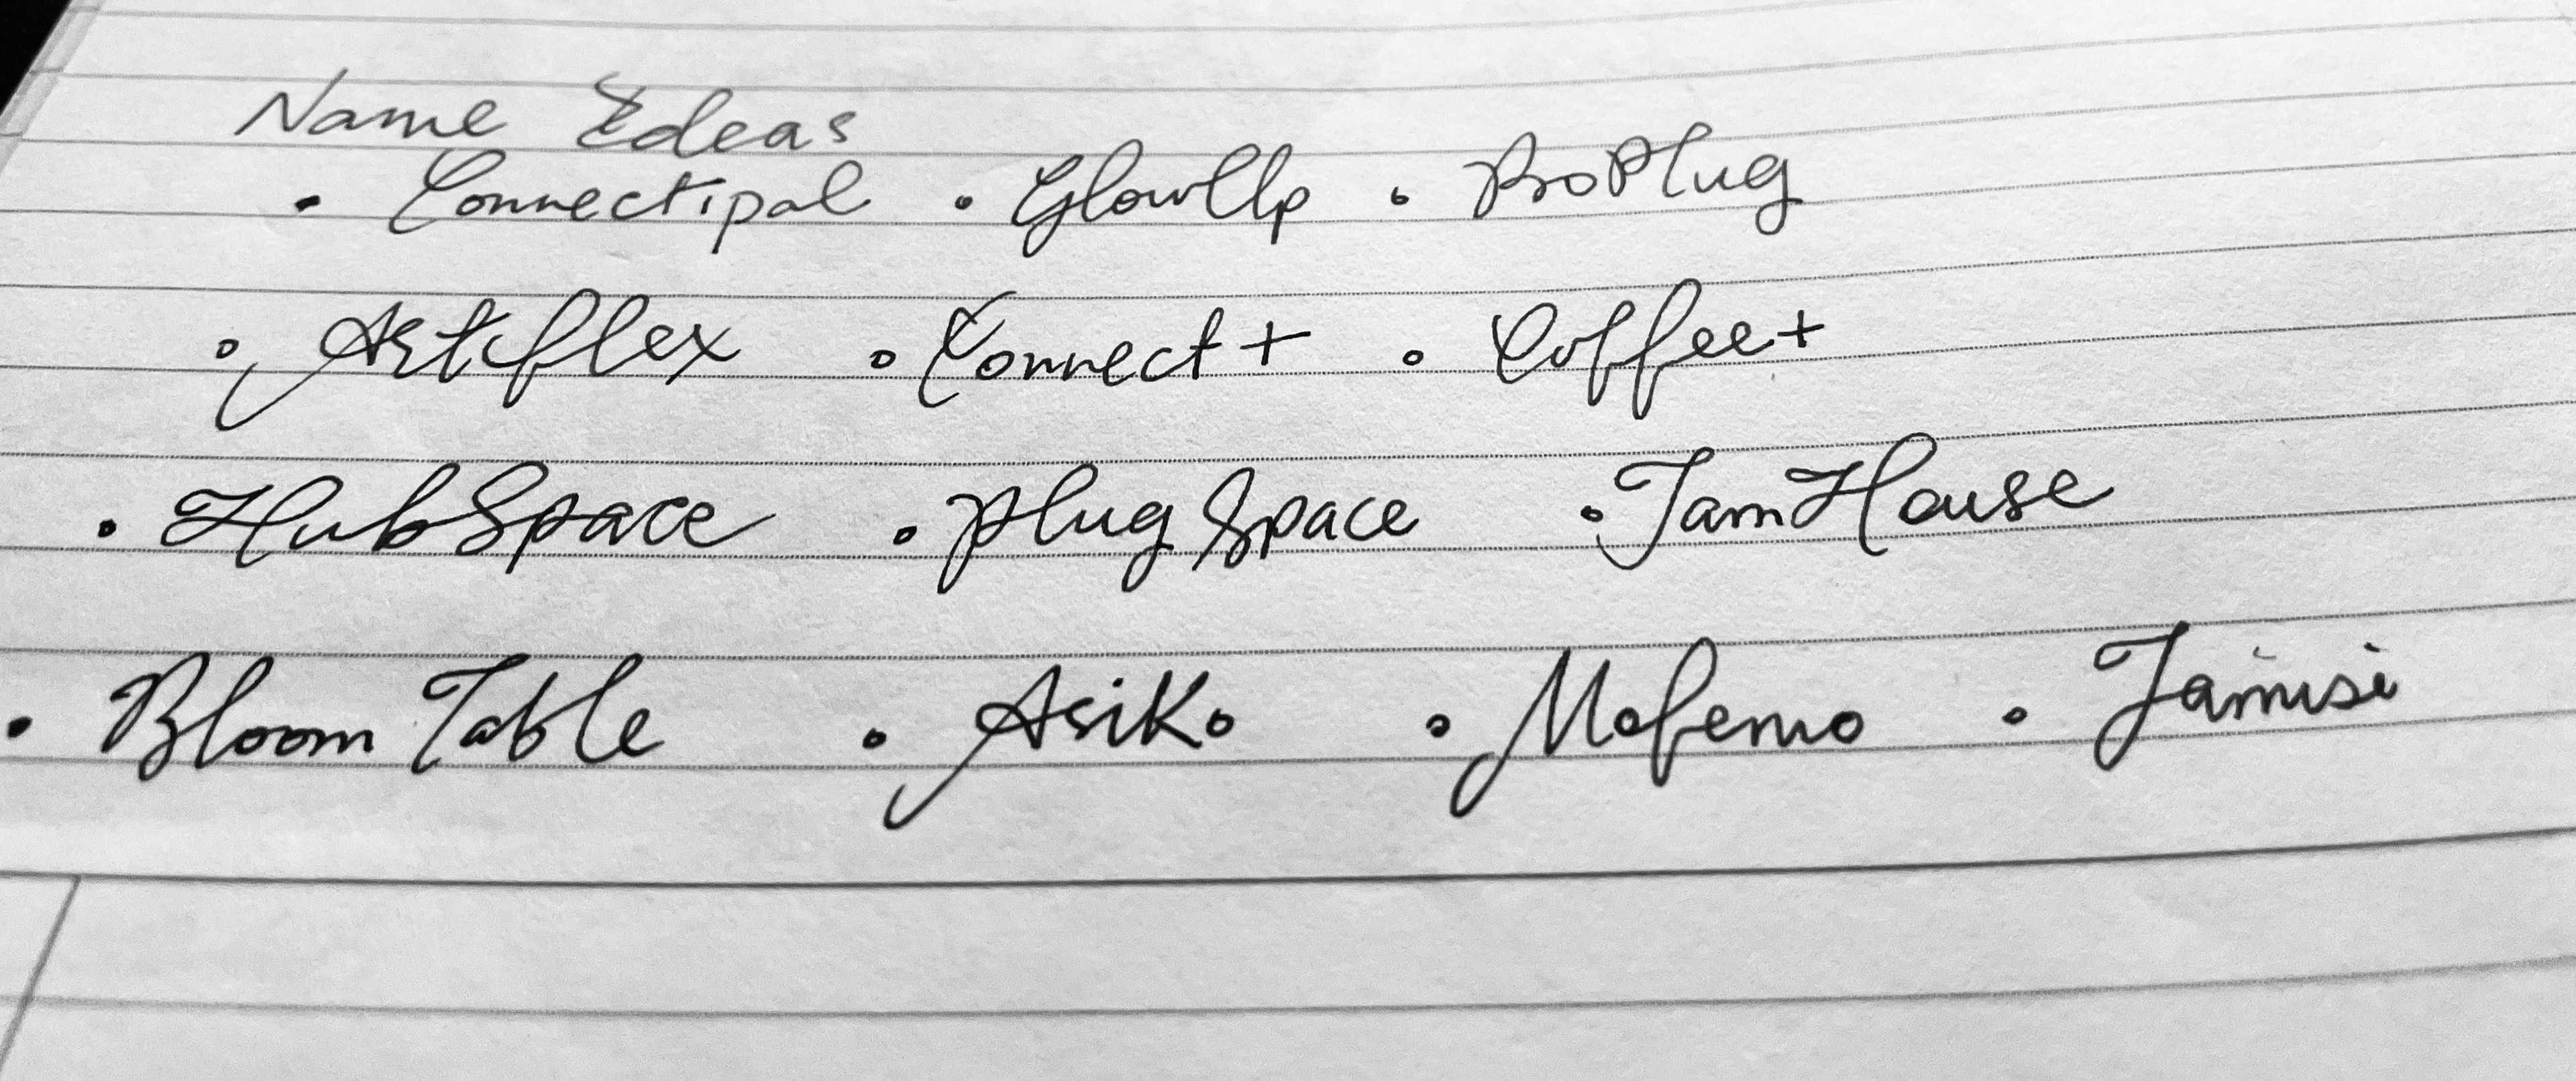 Name Ideas
• Connectipal • GlowUp • ProPlug
• Artiflex • Connect+ • Coffee+
• HubSpace • PlugSpace • JamHouse
• Bloom Table • Asiko • Mofemo